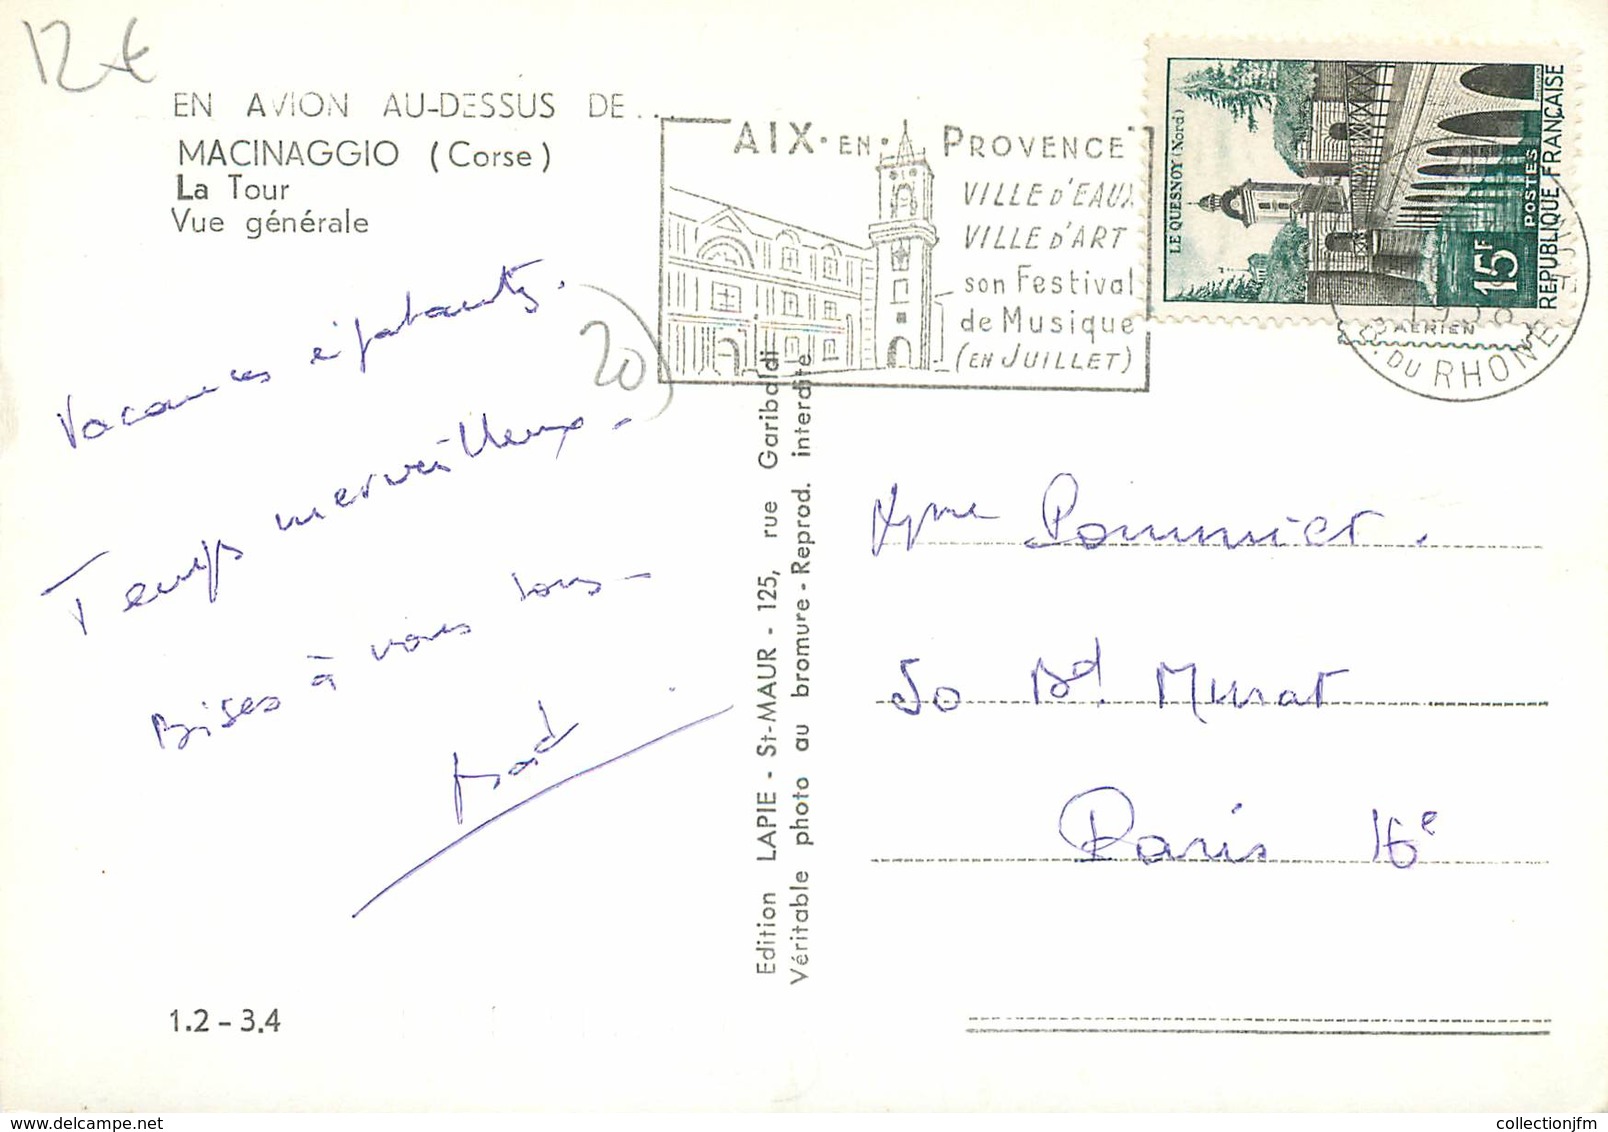 12 €
EN AVION AU-DESSUS DE...
MACINAGGIO (Corse)
La Tour
Vue générale
AIX·EN· PROVENCE
VILLE D'EAUX
VILLE D'ART
son Festival
de Musique
(EN JUILLET)
LE QUESNOY (Nord)
15F
POSTES
REPUBLIQUE FRANÇAISE
AERIEN
B. DU RHONE
20
Vacances épatantes.
Temps merveilleux.
Bises à vous tous
Edition LAPIE - St-MAUR - 125, rue Garibaldi
Véritable photo au bromure - Reprod. interdite
Pommier.
50 Bd. Murat
Paris 16e
1.2 - 3.4
collectionjfm